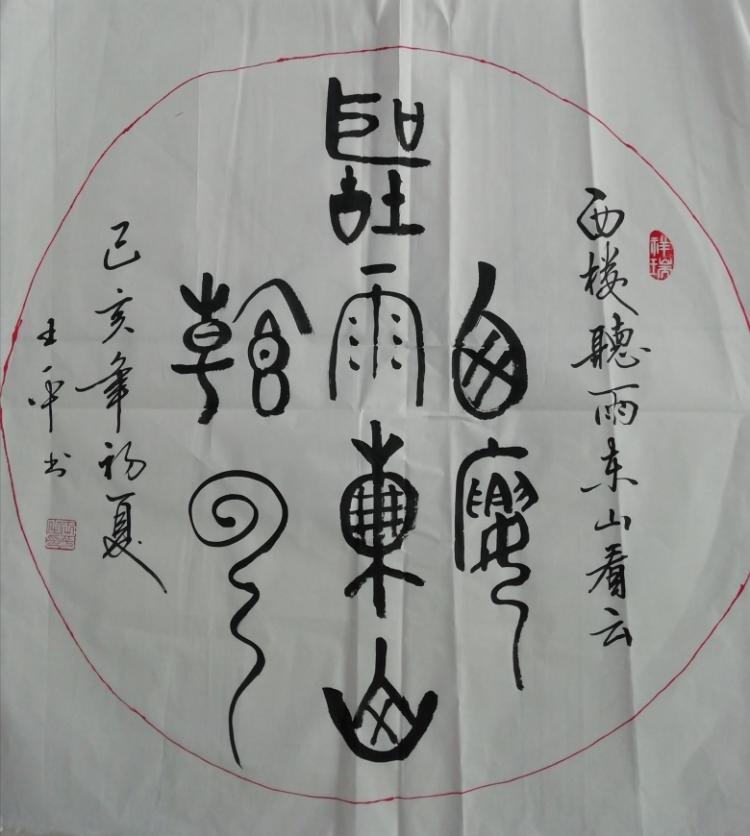 西楼聽雨东山看云
西廔
聽雨東山
䩗云
己亥年初夏
王平书
祥瑞